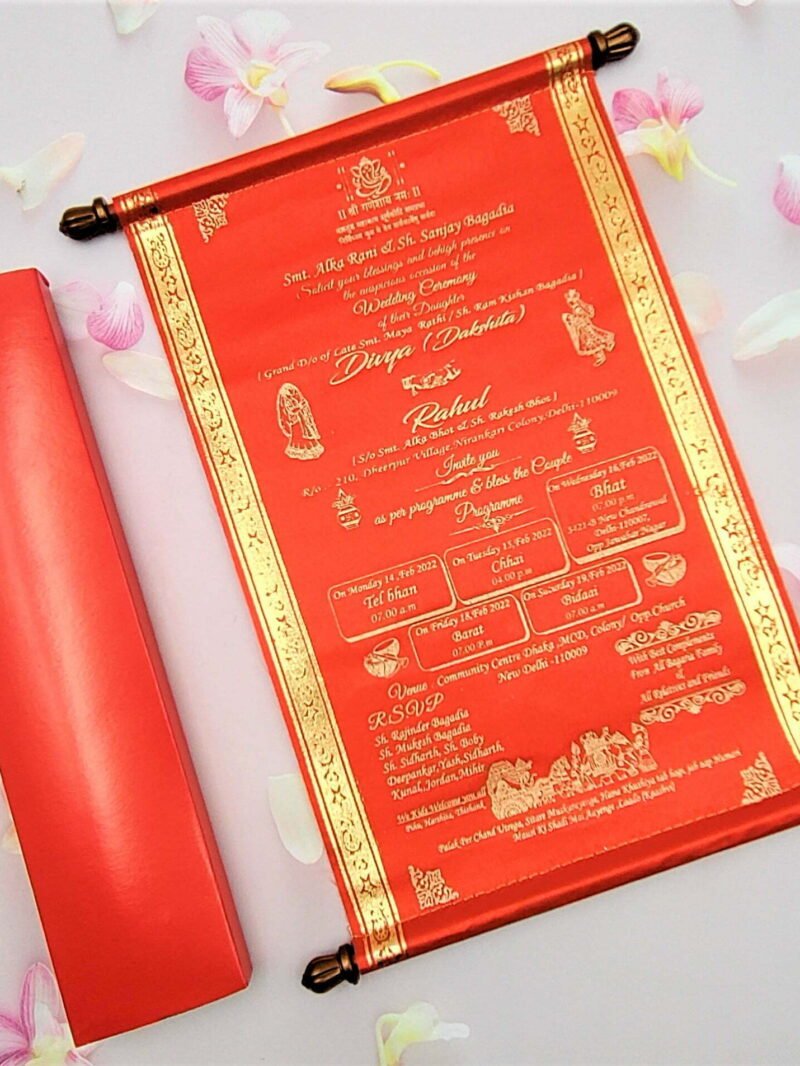 ॥ श्री गणेशाय नमः ॥
Smt. Alka Rani & Sh. Sanjay Bagadia
(Solicit your blessings and behigh presence on
the auspicious occasion of the
Wedding Ceremony
of their Daughter
( Grand D/o of Late Smt. Maya Rathi / Sh. Ram Kishan Bagadia )
Divya (Dakshita)
Rahul
[ S/o Smt. Alka Bhot & Sh. Rakesh Bhot ]
R/o. . 210, Dheerpur Village, Nirankari Colony, Delhi-110009
Invite you
as per programme & bless the Couple
Programme
On Monday 14 ,Feb 2022
Tel bhan
07.00 a.m
On Tuesday 15, Feb 2022
Chhai
04.00 p.m
On Wednesday 16,Feb 2022
Bhat
07.00 p.m
3421-B New Chandrawal
Delhi-110007,
Opp Jawahar Nagar
On Friday 18,Feb 2022
Barat
07.00 P.m
On Saturday 19,Feb 2022
Bidaai
07.00 a.m
Venue : Community Centre Dhaka ,MCD, Colony/ Opp.Church
New Delhi -110009
With Best Complements
From All Bagaria Family
of
All Relatives and Friends
R.S.V.P
Sh. Rajinder Bagadia
Sh. Mukesh Bagadia
Sh. Sidharth, Sh. Boby
Deepankar,Yash,Sidharth,
Kunal,Jordan,Mihir
We Kids Welcome you all
Harshita,
Palak Per Chand Utrega, Sitare Muskurayenge, Hame Khushiya tab hogi, jab aap Hamari
Mausi Ki Shadi Mai Aayenge